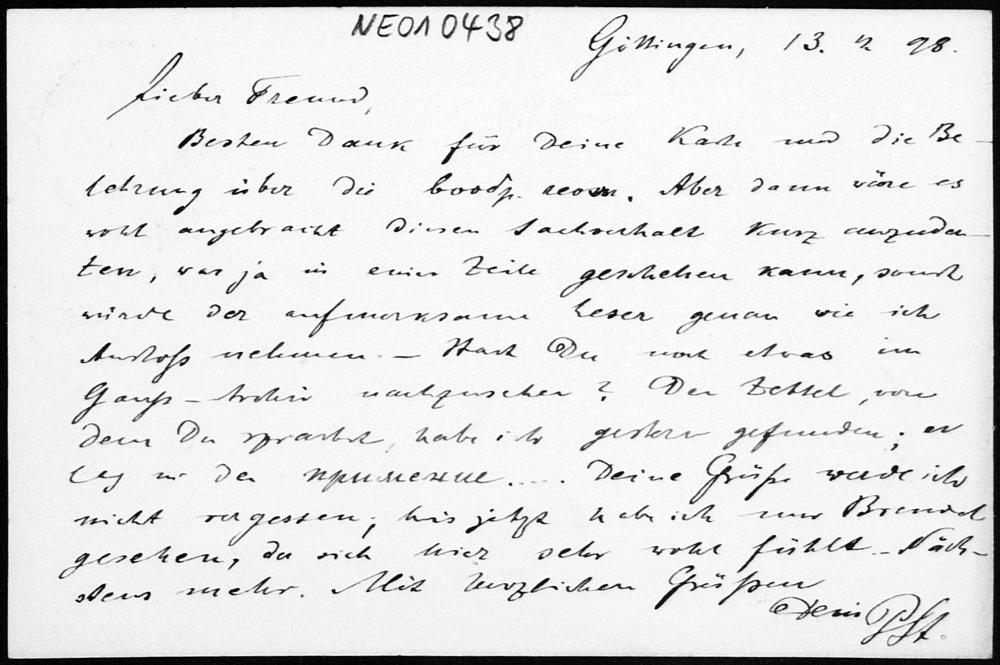 NE010438
Göttingen, 13. 98.
Lieber Freund,
Besten Dank für Deine Karte und die Be-
lehrung über die Aber dann wäre es
wohl angebracht diesen Sachverhalt kurz anzudeu-
ten, was ja in einer Zeile geschehen kann, sonst
würde der aufmerksame Leser genau wie ich
Anstoß nehmen. – Hast Du noch etwas im
Gauß-Archiv nachzusehen? Der Zettel, von
dem Du sprachst, habe ich gestern gefunden; er
lag in der применение.... Deine Grüße werde ich
nicht vergessen; bis jetzt habe ich nur Brendel
gesehen, der sich hier sehr wohl fühlt. – Näch-
stens mehr. Mit herzlichen Grüßen
Dein